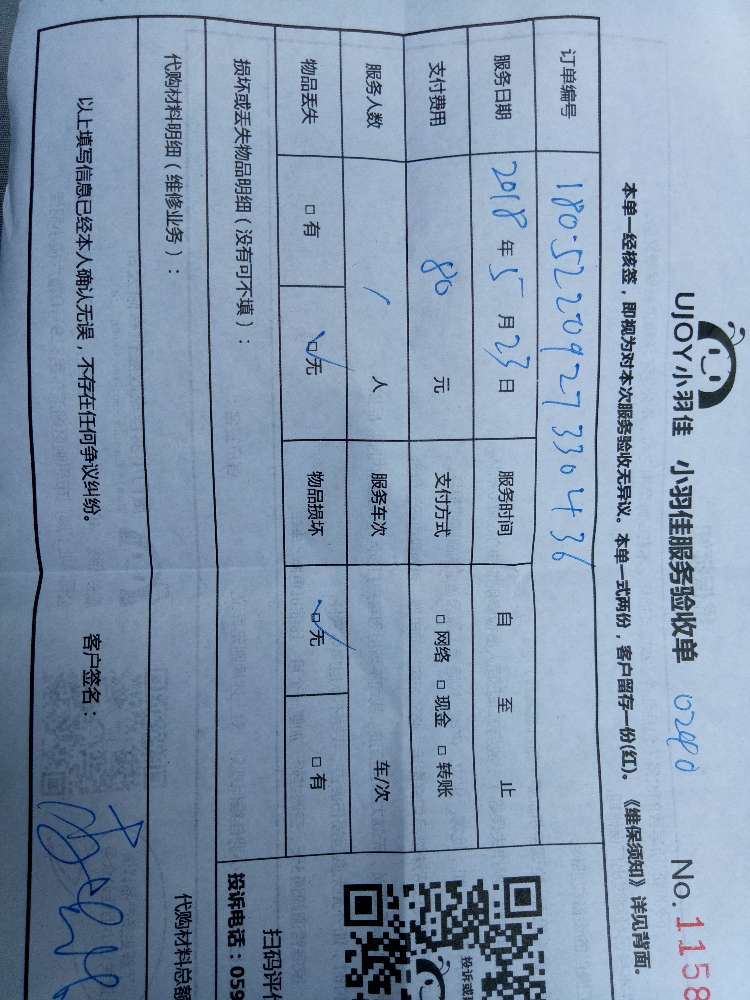 UJOY小羽佳 小羽佳服务验收单 02980 No.1158
本单一经核签，即视为对本次服务验收无异议。本单一式两份，客户留存一份(红)。《维保须知》详见背面。
订单编号 180522092733 0436
服务日期 2018 年 5 月 23 日 服务时间 自 至 止
支付费用 80 元 支付方式 □ 网络 □ 现金 □ 转账
服务人数 1 人 服务车次 车/次
物品丢失 □ 有 ☑ 无 物品损坏 ☑ 无 □ 有
损坏或丢失物品明细（没有可不填）：
代购材料明细（维修业务）：
代购材料总额
以上填写信息已经本人确认无误，不存在任何争议纠纷。 客户签名：
投诉或
扫码评价
投诉电话：059